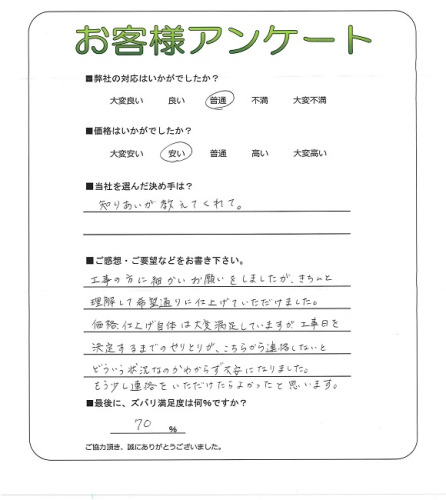 お客様アンケート
■弊社の対応はいかがでしたか？
大変良い 良い 普通 不満 大変不満
■価格はいかがでしたか？
大変安い 安い 普通 高い 大変高い
■当社を選んだ決め手は？
知りあいが教えてくれて。
■ご感想・ご要望などをお書き下さい。
工事の方に細かいお願いをしましたが、きちんと
理解して希望通りに仕上げていただけました。
価格、仕上げ自体は大変満足していますが工事日を
決定するまでのやりとりが、こちらから連絡しないと
どういう状況なのかわからず不安になりました。
もう少し連絡をいただけたらよかったと思います。
■最後に、ズバリ満足度は何%ですか？
70 %
ご協力頂き、誠にありがとうございました。